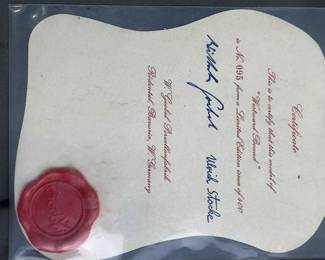 Certificate
This is to certify that this model of
is No. 095 from a Limited Edition issue of 400
Ulrich Stocke
W. Goebel Porzellanfabrik
Rödental, Bavaria, W. Germany